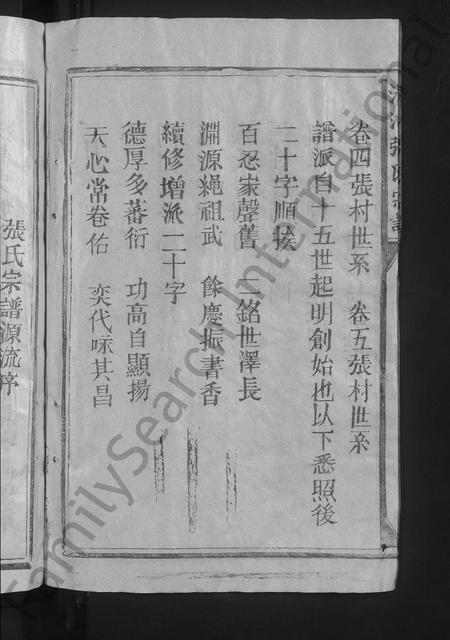 清河張氏宗譜
卷四張村世系　卷五張村世系
譜派自十五世起明創始也以下悉照後
二十字順挨
百忍家聲舊　二銘世澤長
淵源繩祖武　餘慶振書香
續修增派二十字
德厚多蕃衍　功高自顯揚
天心常眷佑　奕代咏其昌
張氏宗譜源流序
FamilySearch International